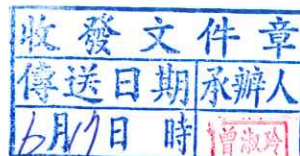 收發文件章
傳送日期 承辦人
6月17日 時 曾淑玲